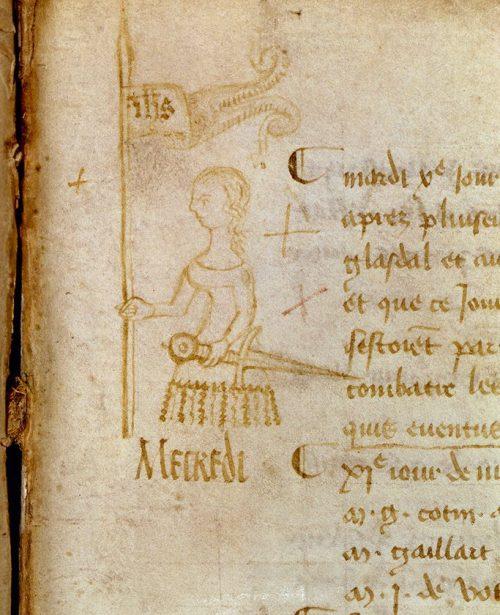 ihs
mardi xe Jour
apres pluiseu
glasdal et au
et que ce Jou
sestoiēt par
combatre les
quis euentue
MECREDI
xje iour de m
m. g. cotin.
m. gaillart
m. J. de